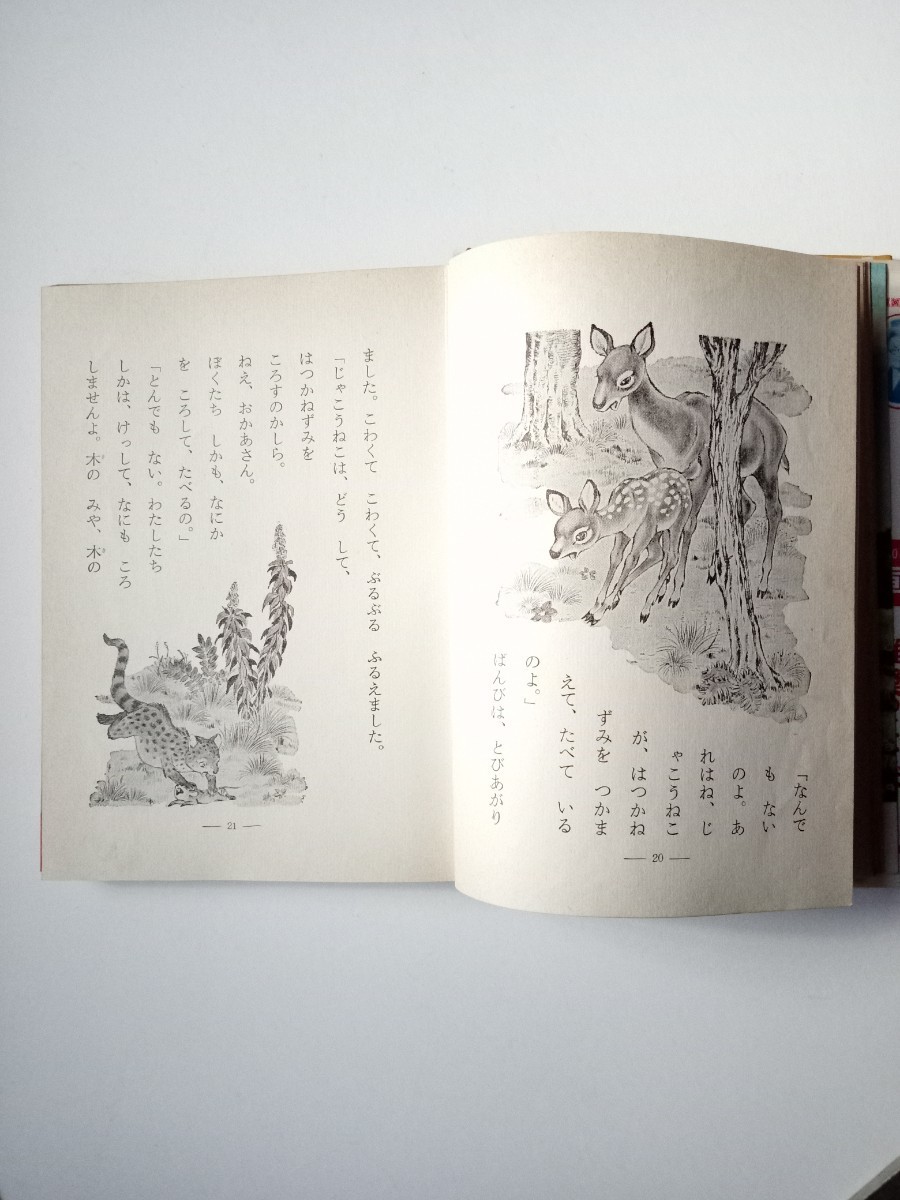 「なんで
も ない
のよ。あ
れはね、じ
ゃこうねこ
が、はつかね
ずみを つかま
えて、たべて いる
のよ。」
ばんびは、とびあがり
― 20 ―
ました。こわくて こわくて、ぶるぶる ふるえました。
「じゃこうねこは、どう して、
はつかねずみを
ころすのかしら。
ねえ、おかあさん。
ぼくたち しかも、なにか
を ころして、たべるの。」
「とんでも ない。わたしたち
しかは、けっして、なにも ころ
しませんよ。木の みや、木の
― 21 ―